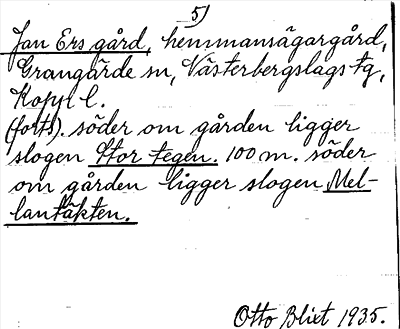 5)
Jan Ers gård, hemmansägargård,
Grangärde sn, Västerbergslags tg,
Kopb l.
(forts). söder om gården ligger
slogen Stor tegen. 100 m. söder
om gården ligger slogen Mel-
lantäkten.
Otto Blixt 1935.